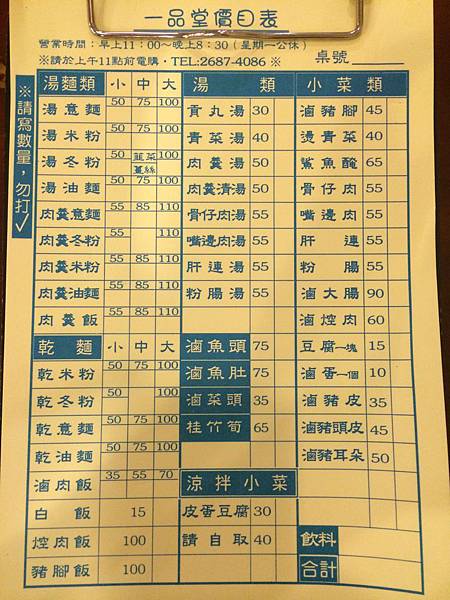 一品堂價目表
營業時間：早上11：00～晚上8：30（星期一公休）
※請於上午11點前電購・TEL:2687-4086 ※
桌號
※請寫數量，勿打✓
湯麵類 小 中 大
湯意麵 50 75 100
湯米粉 50 75 100
湯冬粉 50 韮菜薑絲 100
湯油麵 50 75 100
肉羹意麵 55 85 110
肉羹冬粉 55 110
肉羹米粉 55 85 110
肉羹油麵 55 85 110
肉羹飯 55 85 110
乾麵 小 中 大
乾米粉 50 75 100
乾冬粉 50 100
乾意麵 50 75 100
乾油麵 50 75 100
滷肉飯 35 55 70
白飯 15
焢肉飯 100
豬腳飯 100
湯類
貢丸湯 30
青菜湯 40
肉羹湯 50
肉羹清湯 50
骨仔肉湯 55
嘴邊肉湯 55
肝連湯 55
粉腸湯 55
滷魚頭 75
滷魚肚 75
滷菜頭 35
桂竹筍 65
涼拌小菜
皮蛋豆腐 30
請自取 40
小菜類
滷豬腳 45
燙青菜 40
鯊魚醃 65
骨仔肉 55
嘴邊肉 55
肝連 55
粉腸 55
滷大腸 90
滷焢肉 60
豆腐一塊 15
滷蛋一個 10
滷豬皮 35
滷豬頭皮 45
滷豬耳朵 50
飲料
合計